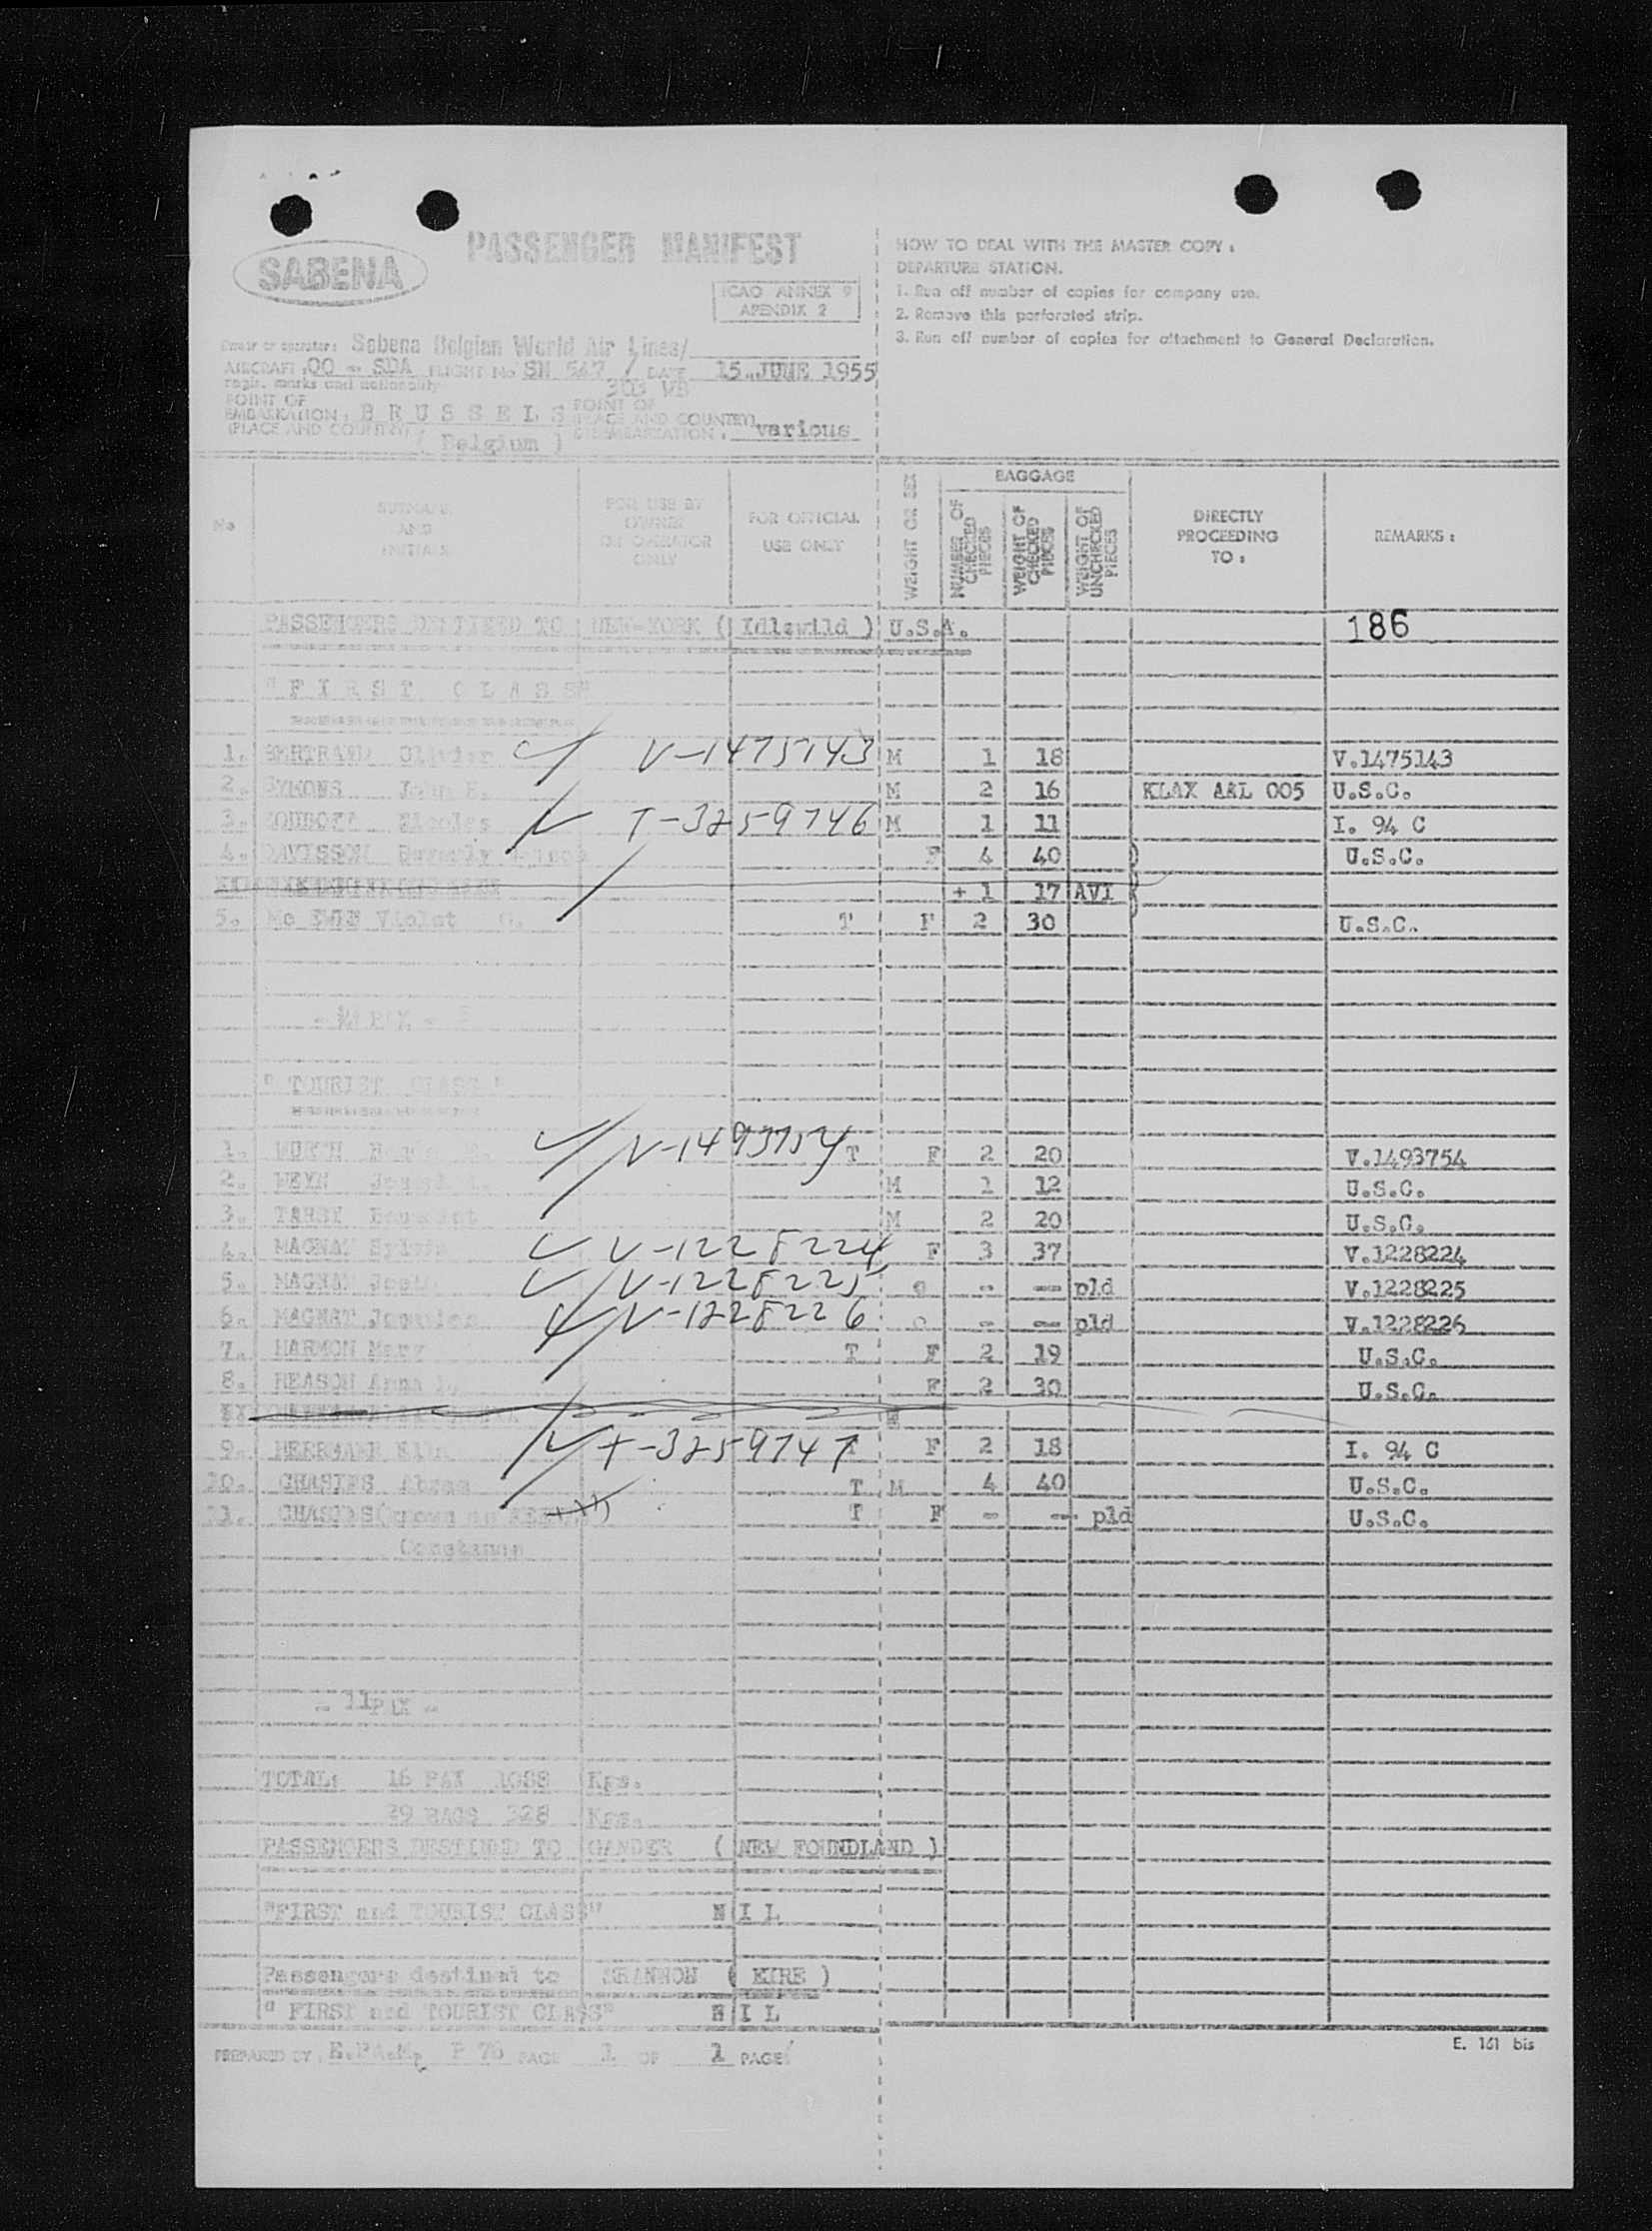 PASSENGER MANIFEST
SABENA
ICAO ANNEX 9
APENDIX 2
HOW TO DEAL WITH THE MASTER COPY :
DEPARTURE STATION.
1. Run off number of copies for company use.
2. Remove this perforated strip.
3. Run off number of copies for attachment to General Declaration.
Owner or operator: Sabena Belgian World Air Lines/
AIRCRAFT : OO - SDA FLIGHT No SN 547 / DATE 15.JUNE 1955
regis. marks and nationality
POINT OF EMBARKATION : B R U S S E L S POINT OF
(PLACE AND COUNTRY) ( Belgium ) (PLACE AND COUNTRY) DISEMBARKATION : various
No SURNAME AND INITIALS FOR USE BY OWNER OR OPERATOR ONLY FOR OFFICIAL USE ONLY WEIGHT OR SEX BAGGAGE NUMBER OF CHECKED PIECES WEIGHT OF CHECKED PIECES WEIGHT OF UNCHECKED PIECES DIRECTLY PROCEEDING TO : REMARKS :
PASSENGERS DESTINED TO NEW-YORK ( Idlewild ) U.S.A. 186
"F I R S T C L A S S"
1. BERTRAND Olivier V-1475143 M 1 18 V.1475143
2. John M 2 16 KLAX AAL 005 U.S.C.
3. Nicolas T-3259746 M 1 11 I. 94 C
4. DAVISSON Beverly F 4 40 U.S.C.
+ 1 17 AVI
5. Mc Violet T F 2 30 U.S.C.
PAX
" TOURIST CLASS "
1. V-1493754 T F 2 20 V.1493754
2. Joseph M 1 12 U.S.C.
3. M 2 20 U.S.C.
4. MAGNAT Sylvie V-1228224 F 3 37 V.1228224
5. MAGNAT V-1228225 c - -- pld V.1228225
6. MAGNAT V-1228226 c - -- pld V.1228226
7. HARMON Mary T F 2 19 U.S.C.
8. REASON Anna F 2 30 U.S.C.
9. T-3259747 F 2 18 I. 94 C
10. CHASINS Abram T M 4 40 U.S.C.
11. CHASINS T F - -- pld U.S.C.
Constance
- 11PAX -
TOTAL: 16 PAX 1088 Kgs.
29 BAGS 328 Kgs.
PASSENGERS DESTINED TO GANDER ( NEW FOUNDLAND )
"FIRST and TOURIST CLASS" N I L
Passengers destined to SHANNON ( EIRE )
" FIRST and TOURIST CLASS" N I L
PREPARED BY : P 76 PAGE 1 OF 1 PAGE
E. 161 bis